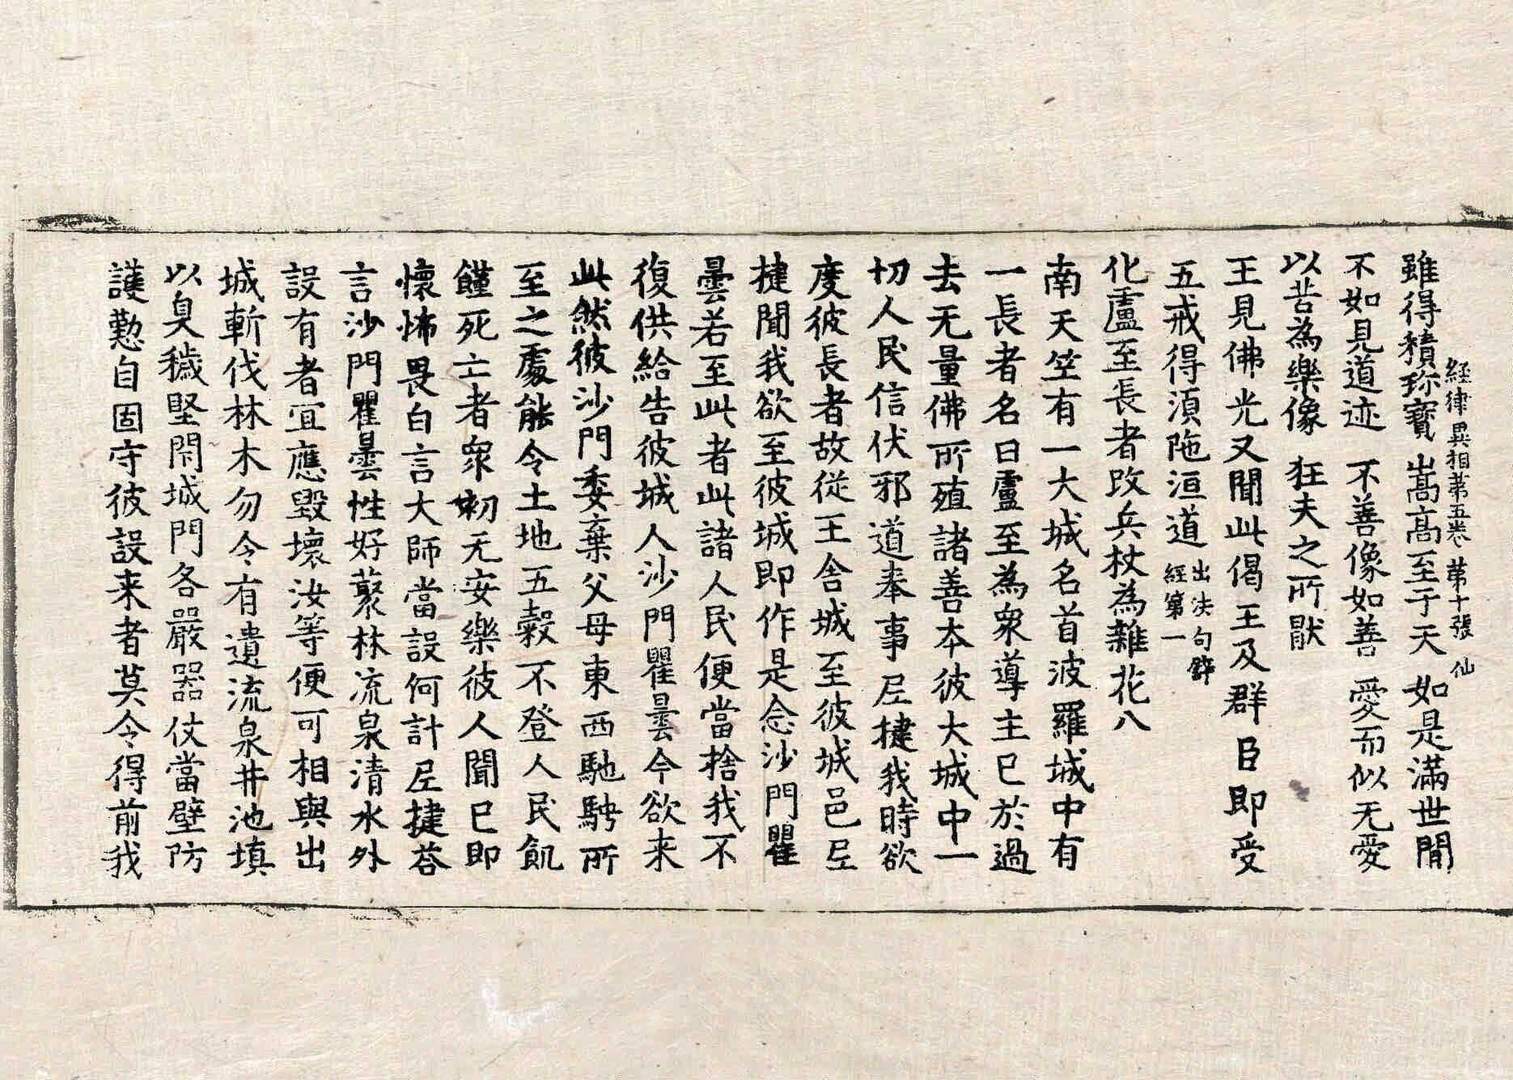 雖得積珎寶 嵩高至于天 如是滿世間
經律異相第五卷 第十張 仙
不如見道迹 不善像如善 愛而似无愛
以苦為樂像 狂夫之所猒
王見佛光又聞此偈王及群臣即受
五戒得湏陁洹道 出法句辟經第一
化盧至長者改兵杖為雜花八
南天竺有一大城名首波羅城中有
一長者名曰盧至為衆導主已於過
去无量佛所殖諸善本彼大城中一
切人民信伏邪道奉事尼揵我時欲
度彼長者故従王舍城至彼城邑尼
揵聞我欲至彼城即作是念沙門瞿
曇若至此者此諸人民便當捨我不
復供給告彼城人沙門瞿曇今欲来
此然彼沙門委棄父母東西馳騁所
至之處能令土地五穀不登人民飢
饉死亡者衆初无安樂彼人聞已即
懷怖畏白言大師當設何計尼揵荅
言沙門瞿曇性好藂林流泉清水外
設有者宜應毀壞汝等便可相與出
城斬伐林木勿令有遺流泉井池填
以臭穢堅閇城門各嚴器仗當壁防
護懃自固守彼設来者莫令得前我